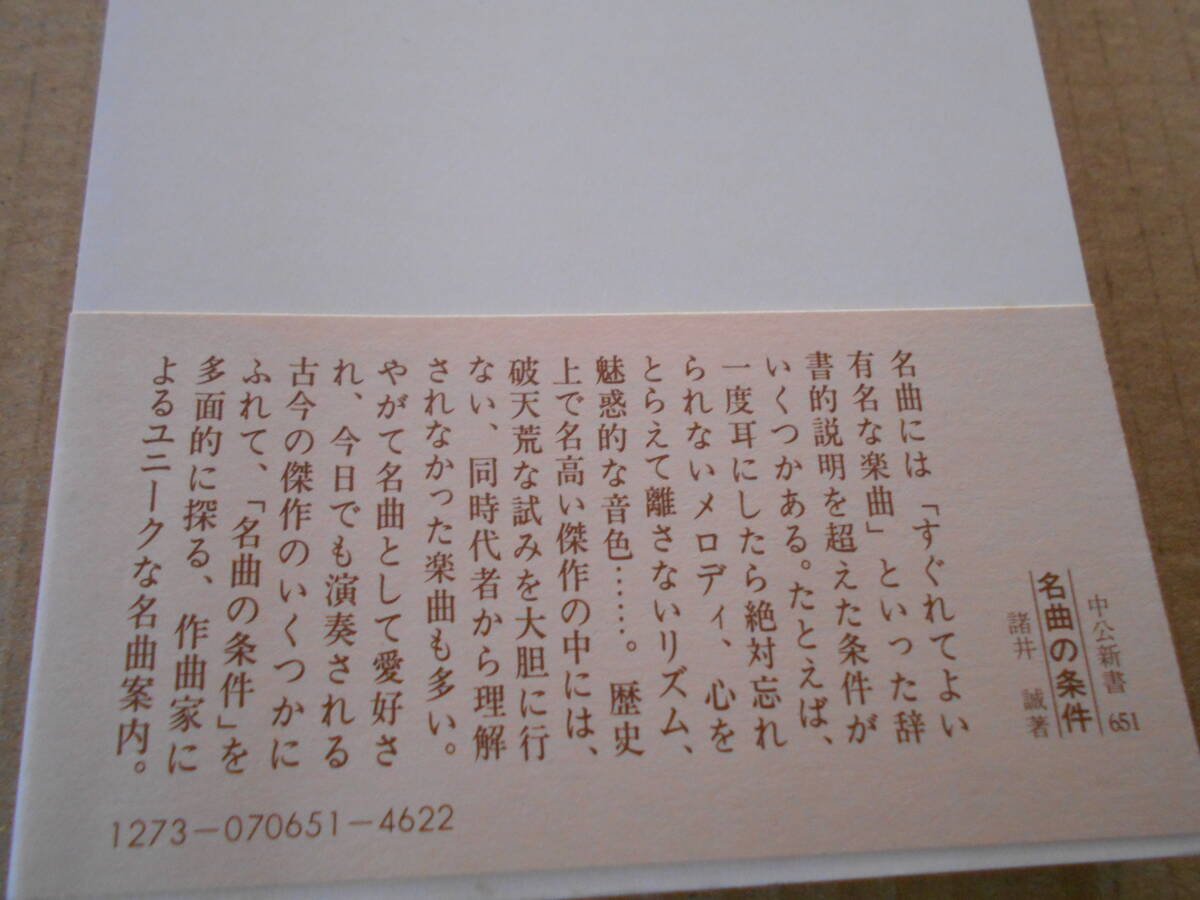 中公新書 651
名曲の条件
諸井 誠著
名曲には「すぐれてよい
有名な楽曲」といった辞
書的説明を超えた条件が
いくつかある。たとえば、
一度耳にしたら絶対忘れ
られないメロディ、心を
とらえて離さないリズム、
魅惑的な音色……。歴史
上で名高い傑作の中には、
破天荒な試みを大胆に行
ない、同時代者から理解
されなかった楽曲も多い。
やがて名曲として愛好さ
れ、今日でも演奏される
古今の傑作のいくつかに
ふれて、「名曲の条件」を
多面的に探る、作曲家に
よるユニークな名曲案内。
1273-070651-4622